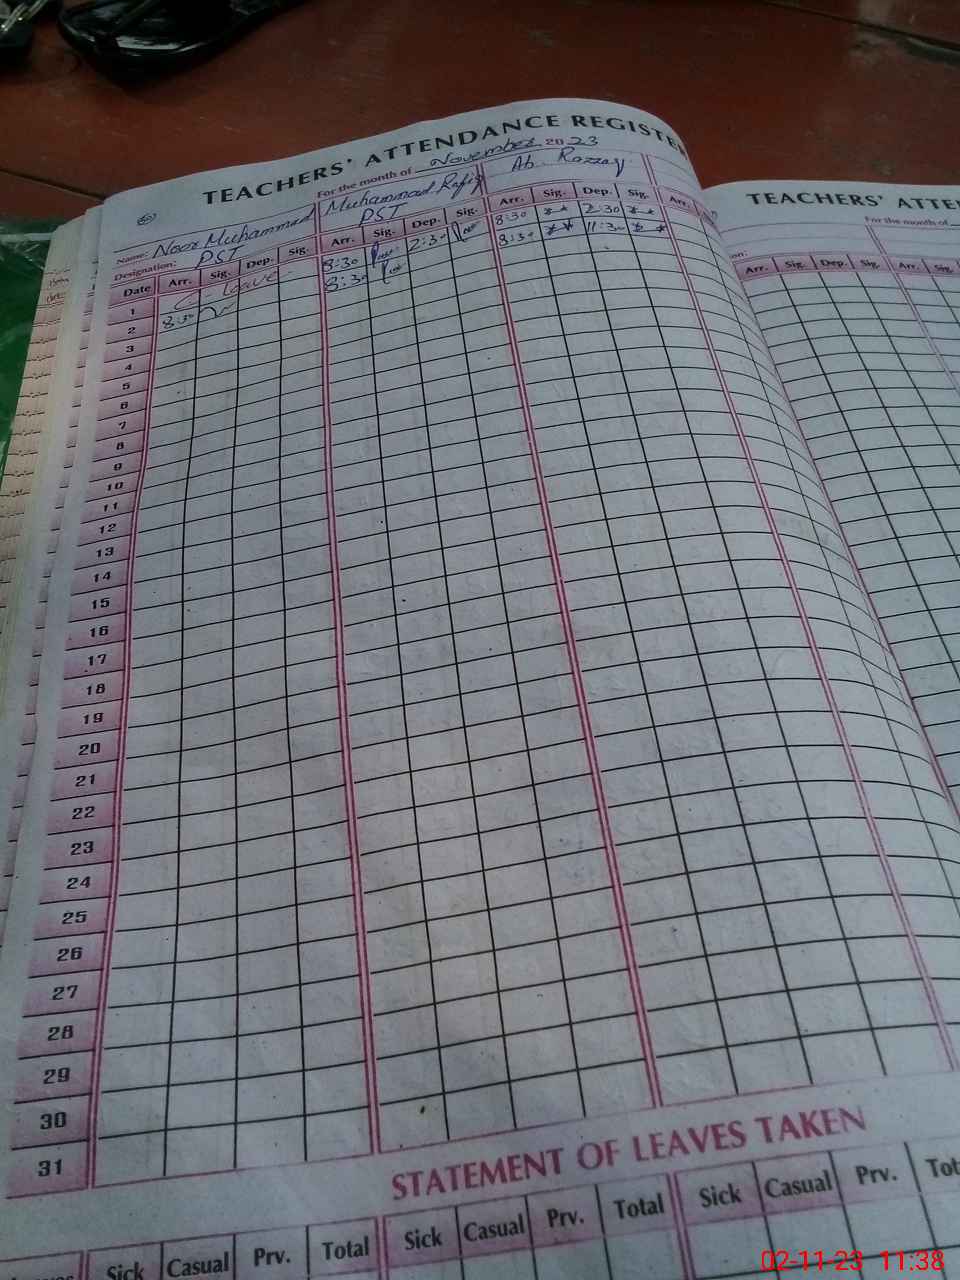 TEACHERS' ATTENDANCE REGISTE
For the month of November 2023
Name: Noor Muhammad Muhammad Rafiq Ab. Razzaq
Designation: PST PST
Date Arr. Sig. Dep. Sig. Arr. Sig. Dep. Sig. Arr. Sig. Dep. Sig. Arr.
1 C-leave 8:30 2:30 8:30 2:30
2 8:30 8:30 8:30 11:30
3
4
5
6
7
8
9
10
11
12
13
14
15
16
17
18
19
20
21
22
23
24
25
26
27
28
29
30
31
STATEMENT OF LEAVES TAKEN
Sick Casual Prv. Total Sick Casual Prv. Total Sick Casual Prv. Tot
TEACHERS' ATTE
For the month of
on:
Arr. Sig. Dep Sig. Arr. Sig.
02-11-23 11:38